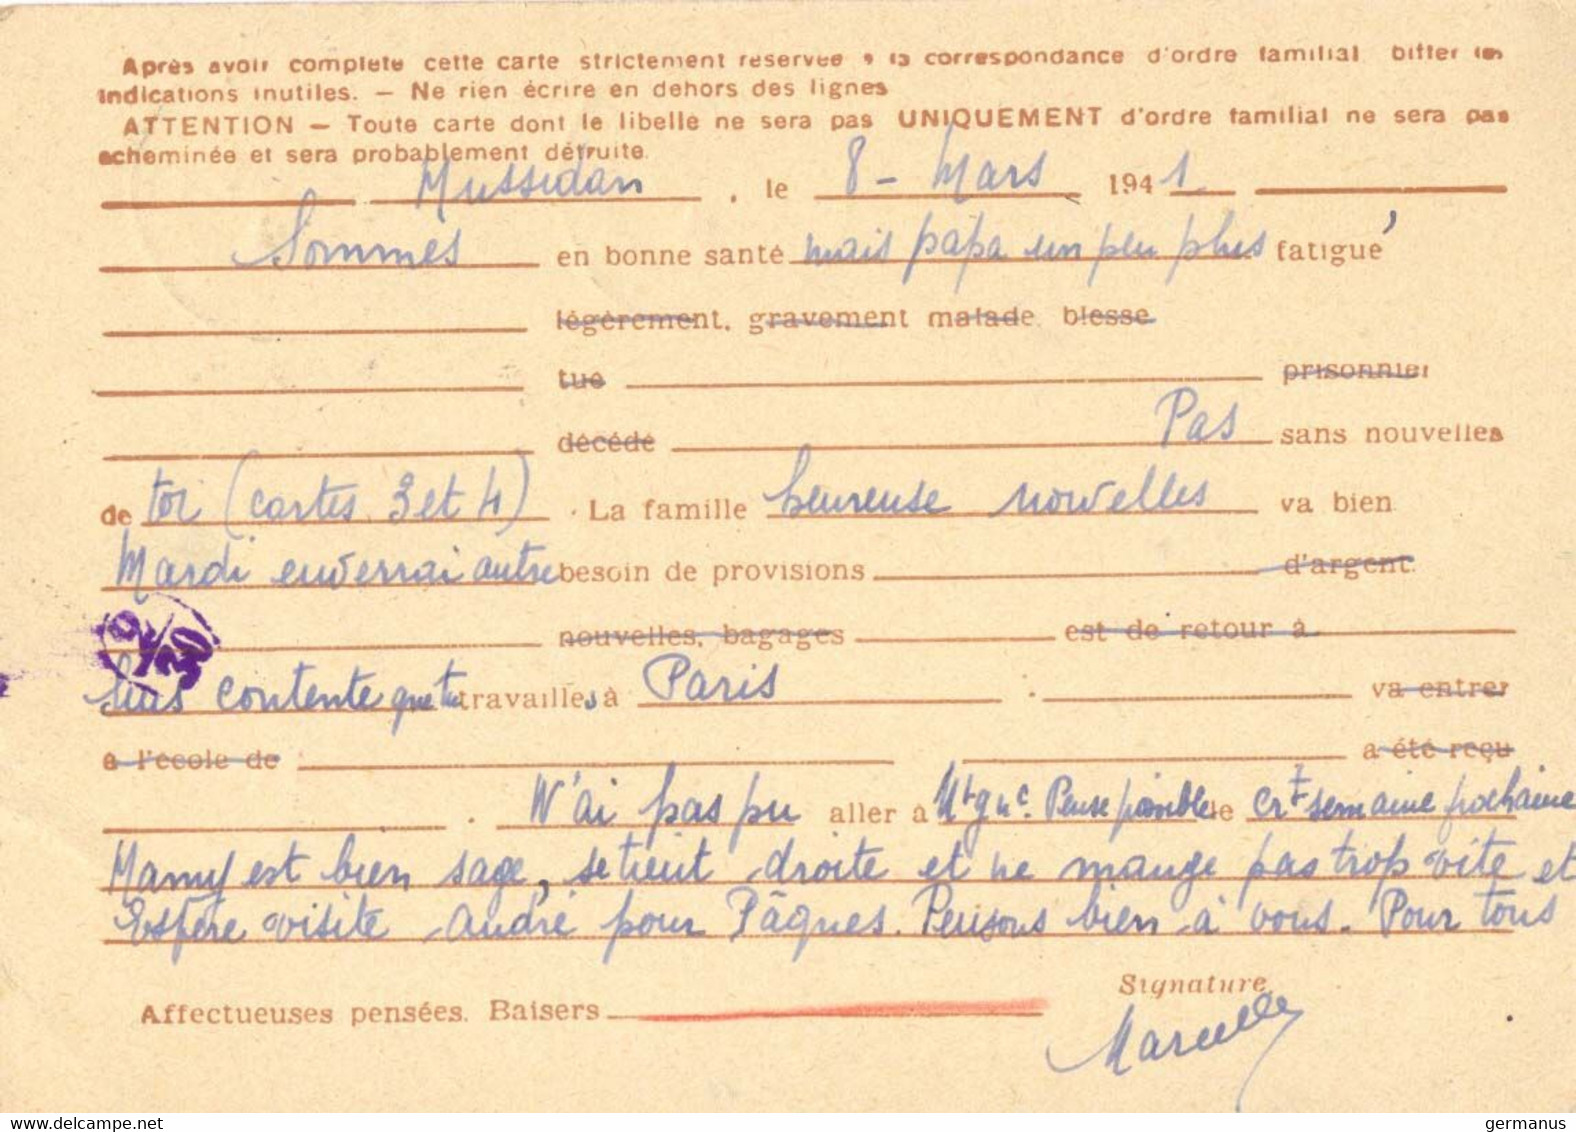 Après avoir complété cette carte strictement réservée à la correspondance d'ordre familial biffer les
indications inutiles. — Ne rien écrire en dehors des lignes
ATTENTION — Toute carte dont le libellé ne sera pas UNIQUEMENT d'ordre familial ne sera pas
acheminée et sera probablement détruite.
Mussidan, le 8 - Mars 1941
Sommes en bonne santé mais papa un peu plus fatigué
légèrement, gravement malade, blessé
tué prisonnier
décédé Pas sans nouvelles
de toi (cartes 3 et 4). La famille heureuse nouvelles va bien
Mardi enverrai autre besoin de provisions d'argent
nouvelles, bagages est de retour à
30
Suis contente que tu travailles à Paris . va entrer
à l'école de a été reçu
. N'ai pas pu aller à Pense possible le semaine prochaine
Mamy est bien sage, se tient droite et ne mange pas trop vite et
Espère visite André pour Pâques. Pensons bien à vous. Pour tous
Affectueuses pensées. Baisers
Signature
Marcelle
www.delcampe.net
germanus